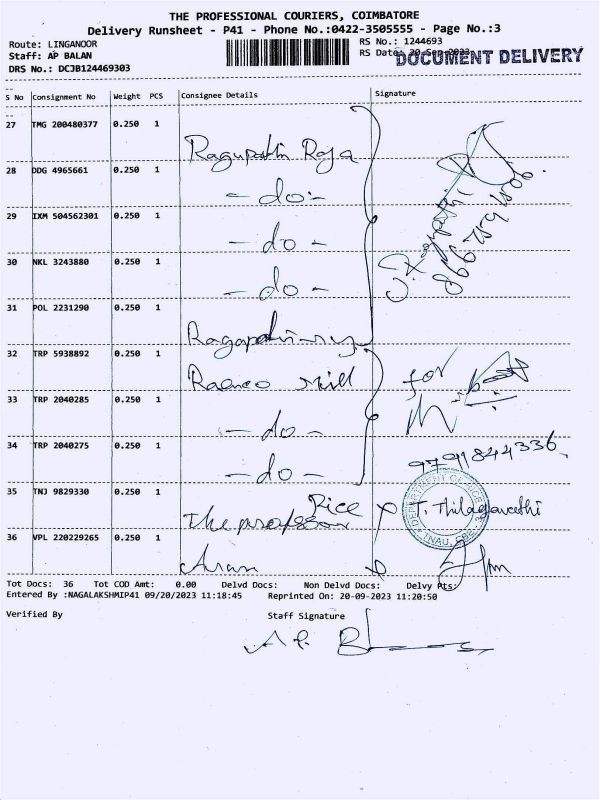 THE PROFESSIONAL COURIERS, COIMBATORE
Delivery Runsheet - P41 - Phone No.:0422-3505555 - Page No.:3
Route: LINGANOOR
Staff: AP BALAN
DRS No.: DCJB124469303
RS No.: 1244693
RS Date: 20-Sep-2023
DOCUMENT DELIVERY
S No Consignment No Weight PCS Consignee Details Signature
27 TMG 200480377 0.250 1 Ragupathi Raja
28 DDG 4965661 0.250 1 - do -
29 IXM 504562301 0.250 1 - do -
30 NKL 3243880 0.250 1 - do -
31 POL 2231290 0.250 1
32 TRP 5938892 0.250 1 Mill for
33 TRP 2040285 0.250 1 - do -
34 TRP 2040275 0.250 1 - do - 9791844336
35 TNJ 9829330 0.250 1 The professor Rice T. Thilagavathi
DEPARTMENT OF RICE
TNAU, CBE - 3
36 VPL 220229265 0.250 1 Arun
Tot Docs: 36 Tot COD Amt: 0.00 Delvd Docs: Non Delvd Docs: Delvy Pts:
Entered By :NAGALAKSHMIP41 09/20/2023 11:18:45 Reprinted On: 20-09-2023 11:20:50
Verified By Staff Signature